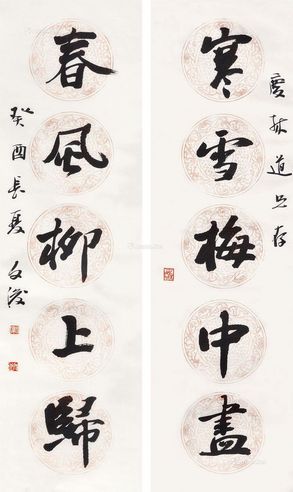 道兄存
寒雪梅中盡
春風柳上歸
癸酉長夏